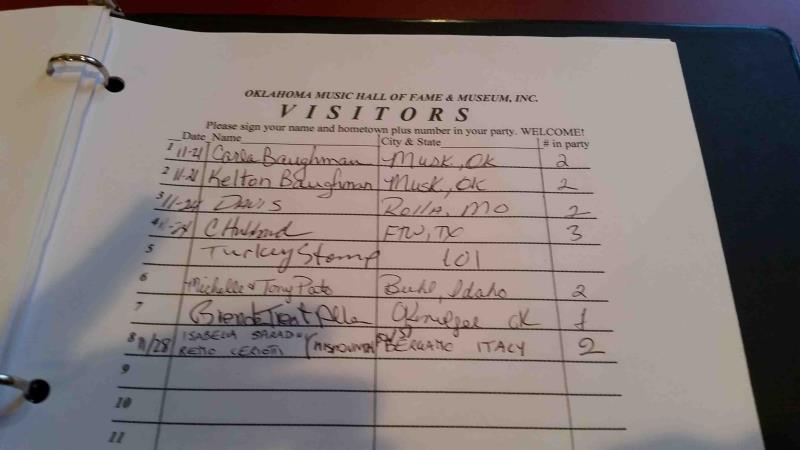 OKLAHOMA MUSIC HALL OF FAME & MUSEUM, INC.
VISITORS
Please sign your name and hometown plus number in your party. WELCOME!
Date Name City & State # in party
1 11-21 Carla Baughman Musk, OK 2
2 11-21 Kelton Baughman Musk, OK 2
3 11-24 DAVIS Rolla, MO 2
4 11-24 C Hubbard FTW, TX 3
5 Turkey Stomp 101
6 Michelle & Tony Pato Buhl, Idaho 2
7 Brenda Trent Okmulgee OK 1
8 11/28 ISABELLA BERGAMO ITALY 2
REMO CERIOTTI
9
10
11